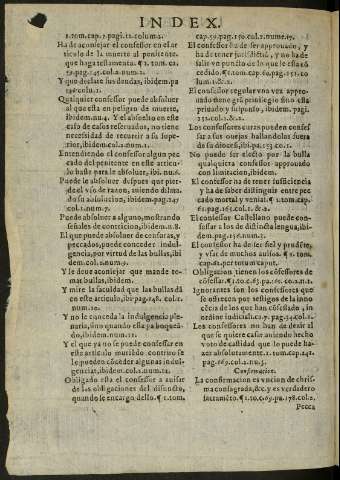 INDEX.
1.tom.cap.7.pagi.12.colum.2.
Ha de aconsejar el confessor en el articulo de la muerte al penitente,
que haga testamento. ¶ 1. tom. ca.
Y que declare sus deudas, ibidem pa
Qualquier confessor puede absoluer
al que esta en peligro de muerte,
ibidem.nu.4. Y el absuelto en este
caso de casos reseruados, no tiene
necesidad de recurrir a su superior, ibidem.col.2.nu.1.
Entendiendo el confessor algun pecado del penitente en este articulo basta para le absoluer, ibi. nu.6.
Puede le absoluer despues que pierde el vso de razon, auiendo dilatado su absolucion, ibidem.pag.147
col.1.num.7.
Puede absoluer a alguno, mostrando
señales de contricion, ibidem.n.8.
El que puede absoluer de censuras, y
peccados, puede conceder indulgencia, por virtud de las bullas, ibidem col.2.num.9.
Y le deue aconsejar que mande tomar bullas, ibidem.
Y mire la facultad que las bullas dã
en este articulo, ibi.pag.148. col.2.
Y no le conceda la indulgencia plenaria, sino quando esta ya boqueãdo, ibidem.num.11.
Y el que ya no se puede confessar en
este articulo muriẽdo contrito se
le pueden cõceder algunas indulgencias, ibidem.col.2.num.12.
Obligado esta el confessor a auisar
de las obligaciones del difuncto,
quando se encargo dello. ¶ 1. tom.
cap.59.pag.150.col.2.nume.17.
El confessor ha de ser approuado, y
ha de tener jurisdictiõ, y no ha de
salir vn puncto de lo que le esta cõcedido. ¶ 1.tom.cap.60.pag.151.colum.1.&.2.
El confessor regular vna vez aprouado tiene grã priuilegio sino esta
priuado y suspenso, ibidem. pagi.
Los confessores curas pueden confessar a sus ouejas hallandolos fuera de su diocesi, ibi.pa.153.col.1.
No puede ser electo por la bulla
qualquiera confessor aprouado
con limitacion, ibidem.
El confessor ha de tener sufficiencia
y ha de saber distinguir entre peccado mortal y venial. ¶ 1.tom.cap.
El confessor Castellano puede confessar a los de distincta lengua, ibidem.pa.155.col.1.num.1.
El confessor ha de ser fiel y prudẽte,
y vsar de muchos auisos. ¶ 1. tom.
cap.62. per totum caput.
Obligacion tienen los cõfessores de
cõfessar. ¶ 1.to.c.65.pa.160.co.n.1.
Ignorantes son los confessores que
se ofrecen por testigos de la innocencia de los que han cõfessado, in
ordine iudiciali.ca.7.pag.54.col.2.
Los confessores no han de dezir al
que se quiere casar auiendo hecho
voto de castidad que lo puede hazer absolutamente. 1. tom.cap.142.
Confirmacion.
La confirmacion es vncion de chrisma consagrada, &c. y es verdadero
sacramẽto. ¶ 1.to.c.69.pa.178.col.2.
Pecca